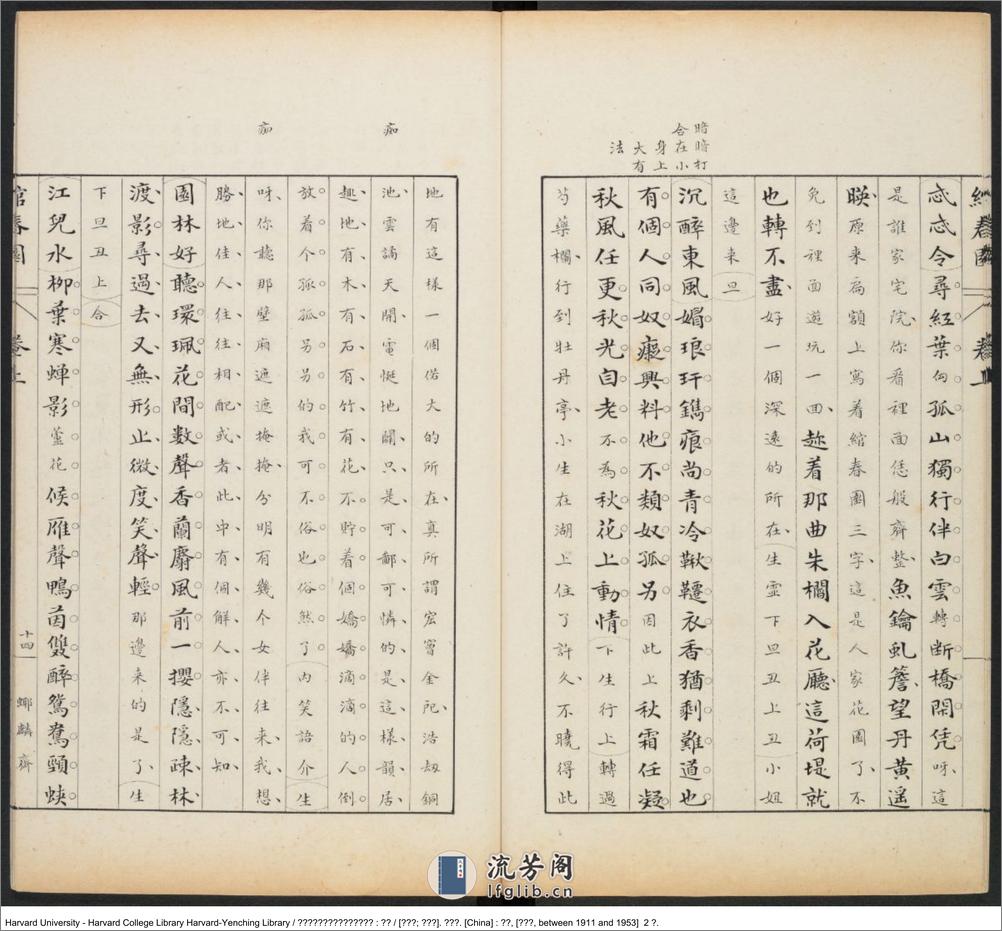 綰春園 卷上
暗暗打
合在小
身上
大有
法
忒忒令尋紅葉向孤山獨行伴白雲轉断橋閑凭呀這
是誰家宅院你看裡面恁般齊整魚鑰虬簷望丹黃遥
映原来扁額上寫着綰春園三字這是人家花園了不
免到裡面遊玩一回趂着那曲朱欄入花廳這荷堤就
也轉不盡好一個深遠的所在生虛下旦丑上丑小姐
這邊来旦
沉醉東風媚琅玕鐫痕尚青冷鞦韆衣香猶剩難道也
有個人同奴癡興料他不類奴孤另因此上秋霜任凝
秋風任更秋光自老不為秋花上動情下生行上轉過
芍藥欄行到牡丹亭小生在湖上住了許久不曉得此
痴
痴
地有這樣一個偌大的所在真所謂宏金戺浩刼銅
池雲譎天開電地闢只是可鄙可憐的是這樣韻居
趣地有木有石有竹有花不貯着個嬌嬌滴滴的人倒
放着个孤孤另另的我可不俗也俗然了内笑語介生
呀你聽那壁廂遮遮掩掩分明有幾个女伴往来我想
勝地佳人往往相配或者此中有個解人亦不可知
園林好聽環珮花間数聲香蘭麝風前一攖隱隱踈林
渡影尋過去又無形止微度笑聲輕那邊来的是了生
下旦丑上合
江兒水柳葉寒蟬影蘆花候雁聲鴨茵雙醉鴛鴦頸蛱
綰春園 卷上 十四 螂麟齊
流芳阁
lfglib.cn
Harvard University - Harvard College Library Harvard-Yenching Library / ??????????????? : ?? / [???; ???]. ???. [China] : ??, [???, between 1911 and 1953]  2 ?.